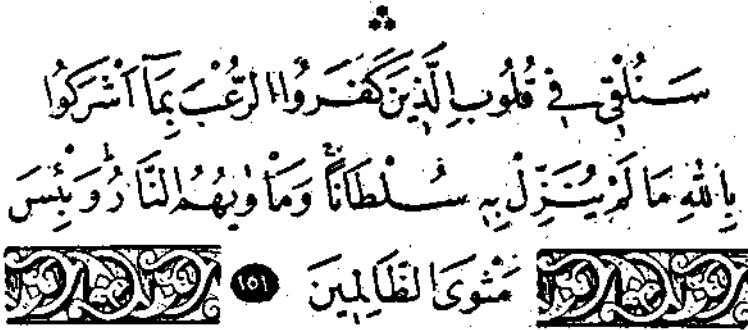 سَنُلْقِي فِي قُلُوبِ الَّذِينَ كَفَرُوا الرُّعْبَ بِمَآ اَشْرَكُوا
بِاللّٰهِ مَا لَمْ يُنَزِّلْ بِهِ سُلْطَانًا وَمَأْوٰيهُمُ النَّارُ وَبِئْسَ
مَثْوَى الظَّالِمِينَ ١٥١